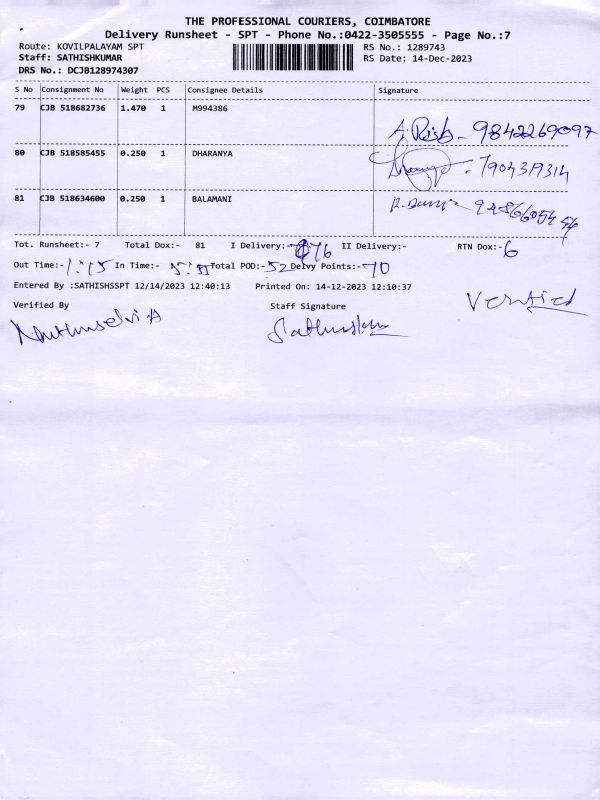 THE PROFESSIONAL COURIERS, COIMBATORE
Delivery Runsheet - SPT - Phone No.:0422-3505555 - Page No.:7
Route: KOVILPALAYAM SPT RS No.: 1289743
Staff: SATHISHKUMAR RS Date: 14-Dec-2023
DRS No.: DCJB128974307
S No Consignment No Weight PCS Consignee Details Signature
79 CJB 518682736 1.470 1 M994386
9842269097
80 CJB 518585455 0.250 1 DHARANYA
81 CJB 518634600 0.250 1 BALAMANI
Tot. Runsheet:- 7 Total Dox:- 81 I Delivery:- 76 II Delivery:- RTN Dox:- 6
Out Time:- 1:15 In Time:- Total POD:- 52 Delvy Points:- 70
Entered By :SATHISHSSPT 12/14/2023 12:40:13 Printed On: 14-12-2023 12:10:37
Verified By Staff Signature Verified